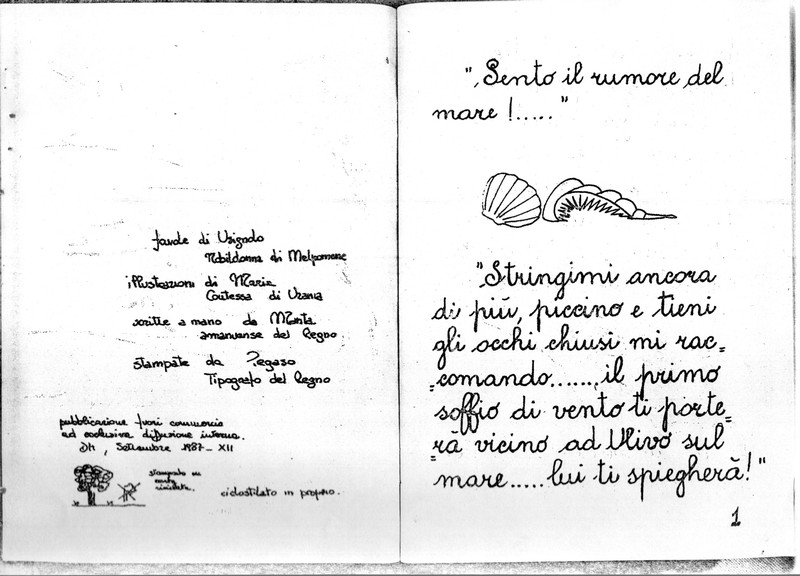 favole di Usignolo
Nobildonna di Melpomene
illustrazioni di Maria
Contessa di Urania
scritte a mano da Marta
amanuense del Regno
stampate da Pegaso
Tipografo del Regno
pubblicazione fuori commercio
ad esclusiva diffusione interna.
DH, Settembre 1987-XII
stampato su
carta
riciclata.
ciclostilato in proprio.
", Sento il rumore del
mare !....."
"Stringimi ancora
di più, piccino e tieni
gli occhi chiusi mi rac=
=comando.......il primo
soffio di vento ti porte=
=rà vicino ad Ulivo sul
mare.....lui ti spiegherà!"
1